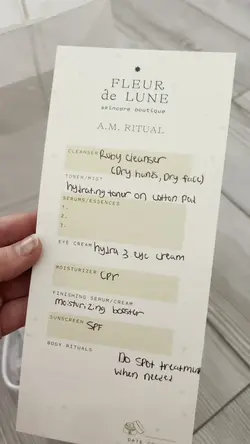 FLEUR
de LUNE
skincare boutique
A.M. RITUAL
CLEANSER Ruby cleanser
(Dry hands, Dry face)
TONER/MIST
hydrating toner on cotton pad
SERUMS/ESSENCES
1.
2.
3.
EYE CREAM hydra 3 eye cream
MOISTURIZER CPR
FINISHING SERUM/CREAM
moisturizing booster
SUNSCREEN SPF
BODY RITUALS
Do SPOT treatment
when needed
DATE